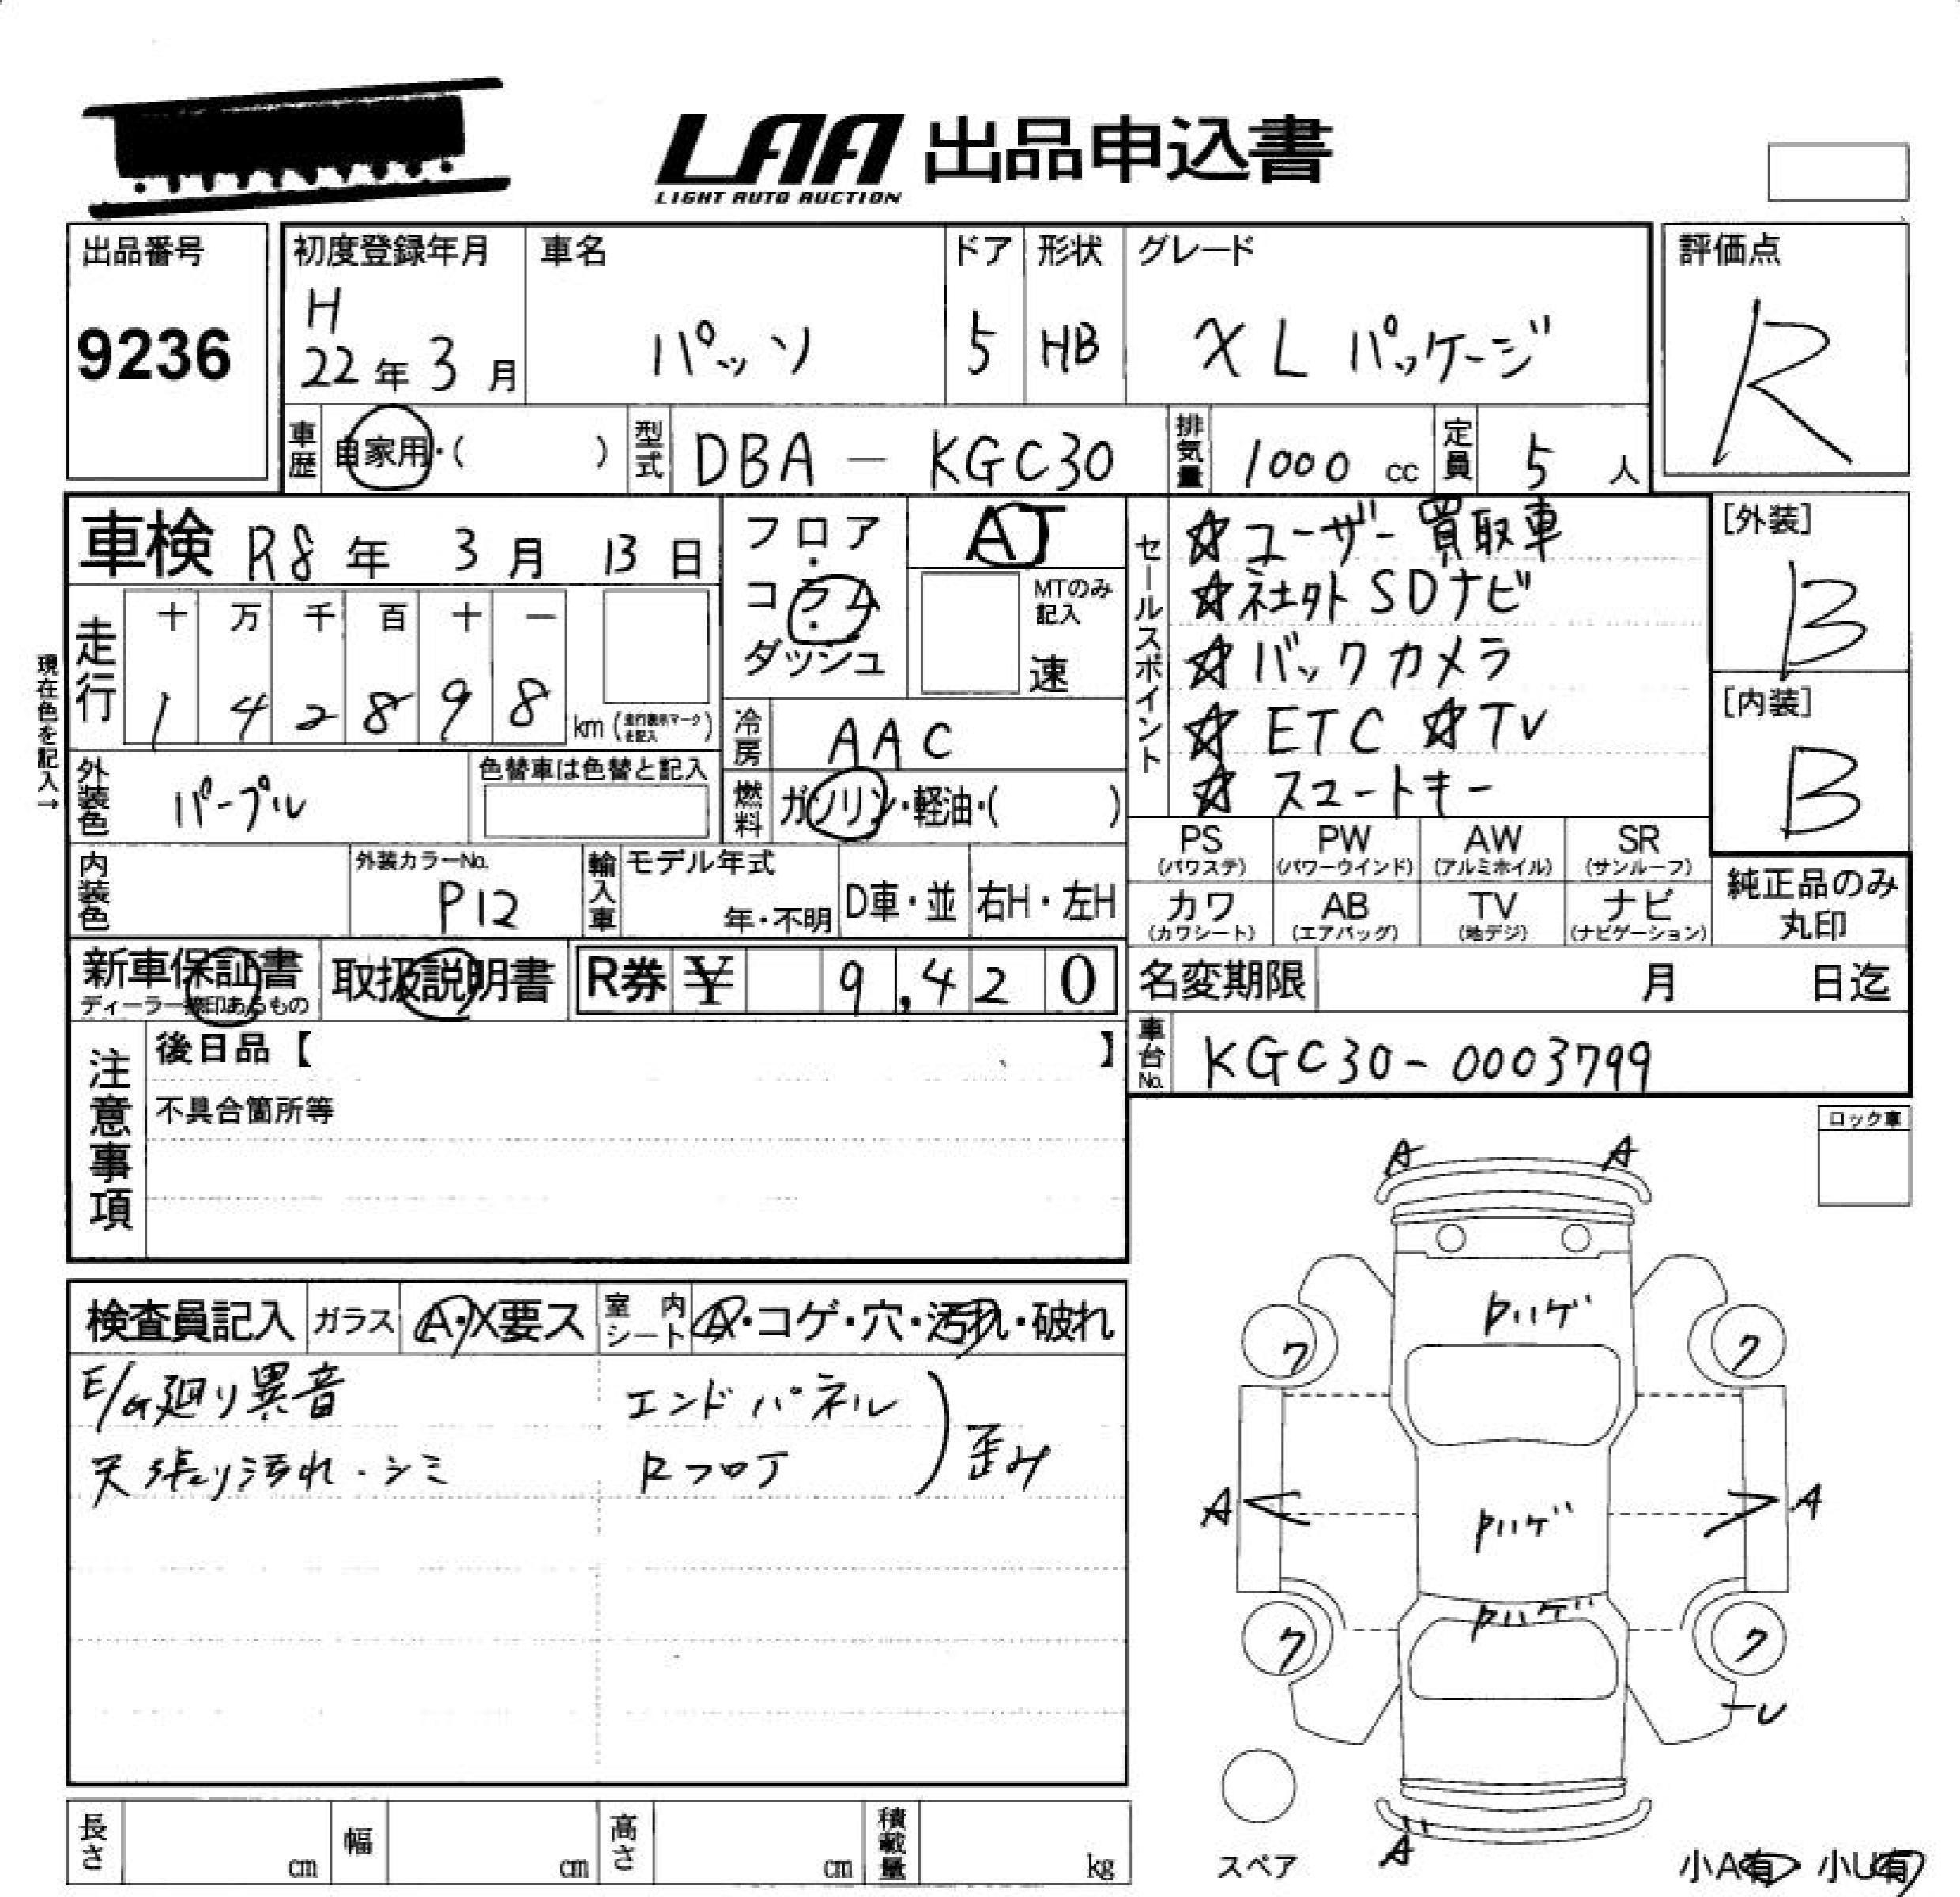 LAA 出品申込書
LIGHT AUTO AUCTION
出品番号
9236
初度登録年月
H
22年 3月
車名
パッソ
ドア
5
形状
HB
グレード
X L パッケージ
評価点
R
車歴
自家用・( )
型式
DBA - KGC30
排気量
1000 cc
定員
5 人
車検 R8年 3月 13日
フロア
・
コラム
・
ダッシュ
AT
MTのみ
記入
速
走行
十 万 千 百 十 一
1 4 2 8 9 8
km (走行表示マークを記入)
現在色を記入→
冷房
AAC
外装色
パープル
色替車は色替と記入
燃料
ガソリン・軽油・( )
セールスポイント
☆ユーザー買取車
☆社外SDナビ
☆バックカメラ
☆ETC ☆TV
☆スマートキー
[外装]
B
[内装]
B
内装色
外装カラーNo.
P12
輸入車
モデル年式
年・不明
D車・並
右H・左H
PS
(パワステ)
PW
(パワーウインド)
AW
(アルミホイル)
SR
(サンルーフ)
カワ
(カワシート)
AB
(エアバッグ)
TV
(地デジ)
ナビ
(ナビゲーション)
純正品のみ
丸印
新車保証書
取扱説明書
R券 ¥ 9,420
名変期限 月 日迄
車台No.
KGC30-0003799
注意事項
後日品【 】
不具合箇所等
ロック車
検査員記入
ガラス
A・X要ス
室内シート
A・コゲ・穴・汚れ・破れ
E/G廻り異音
天張り汚れ・シミ
エンドパネル
Rフロア
歪み
A A
Pハゲ
ワ ワ
A A
Pハゲ
Pハゲ
ワ ワ
A
スペア
小A有・小U有
長さ cm
幅 cm
高さ cm
積載量 kg